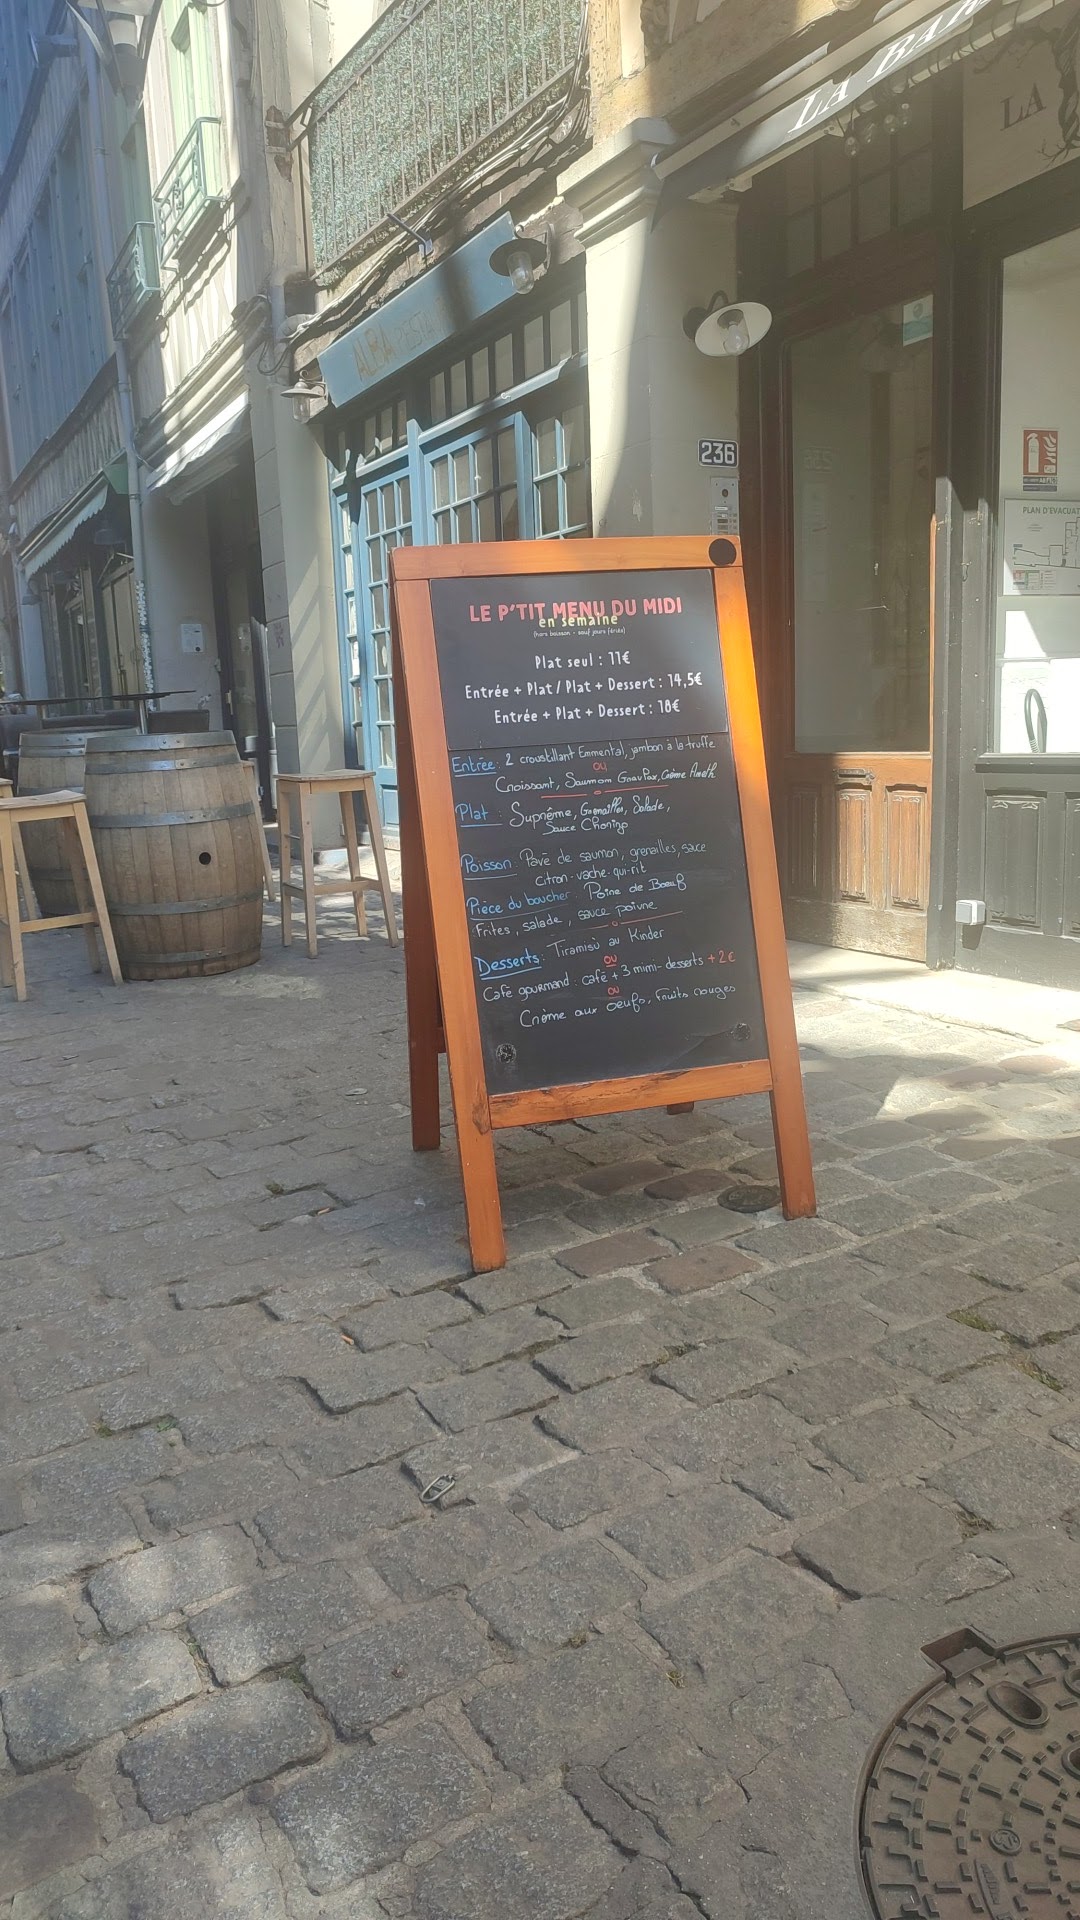 LA BAR
LA
ALBA
236
PLAN D'ÉVACUAT
LE P'TIT MENU DU MIDI
en semaine
(hors boisson - sauf jours fériés)
Plat seul : 11€
Entrée + Plat / Plat + Dessert : 14,5€
Entrée + Plat + Dessert : 18€
Entrée : 2 croustillant Emmental, jambon à la truffe
ou
Croissant, Saumon Gravlax, Crème Aneth
Plat : Suprême, Grenailles, Salade,
Sauce Chorizo
Poisson : Pavé de saumon, grenailles, sauce
citron-vache-qui-rit
Pièce du boucher : Poire de Boeuf
Frites, salade, sauce poivre
Desserts : Tiramisù au Kinder
ou
Café gourmand : café + 3 mimi-desserts +2€
ou
Crème aux oeufs, Fruits rouges